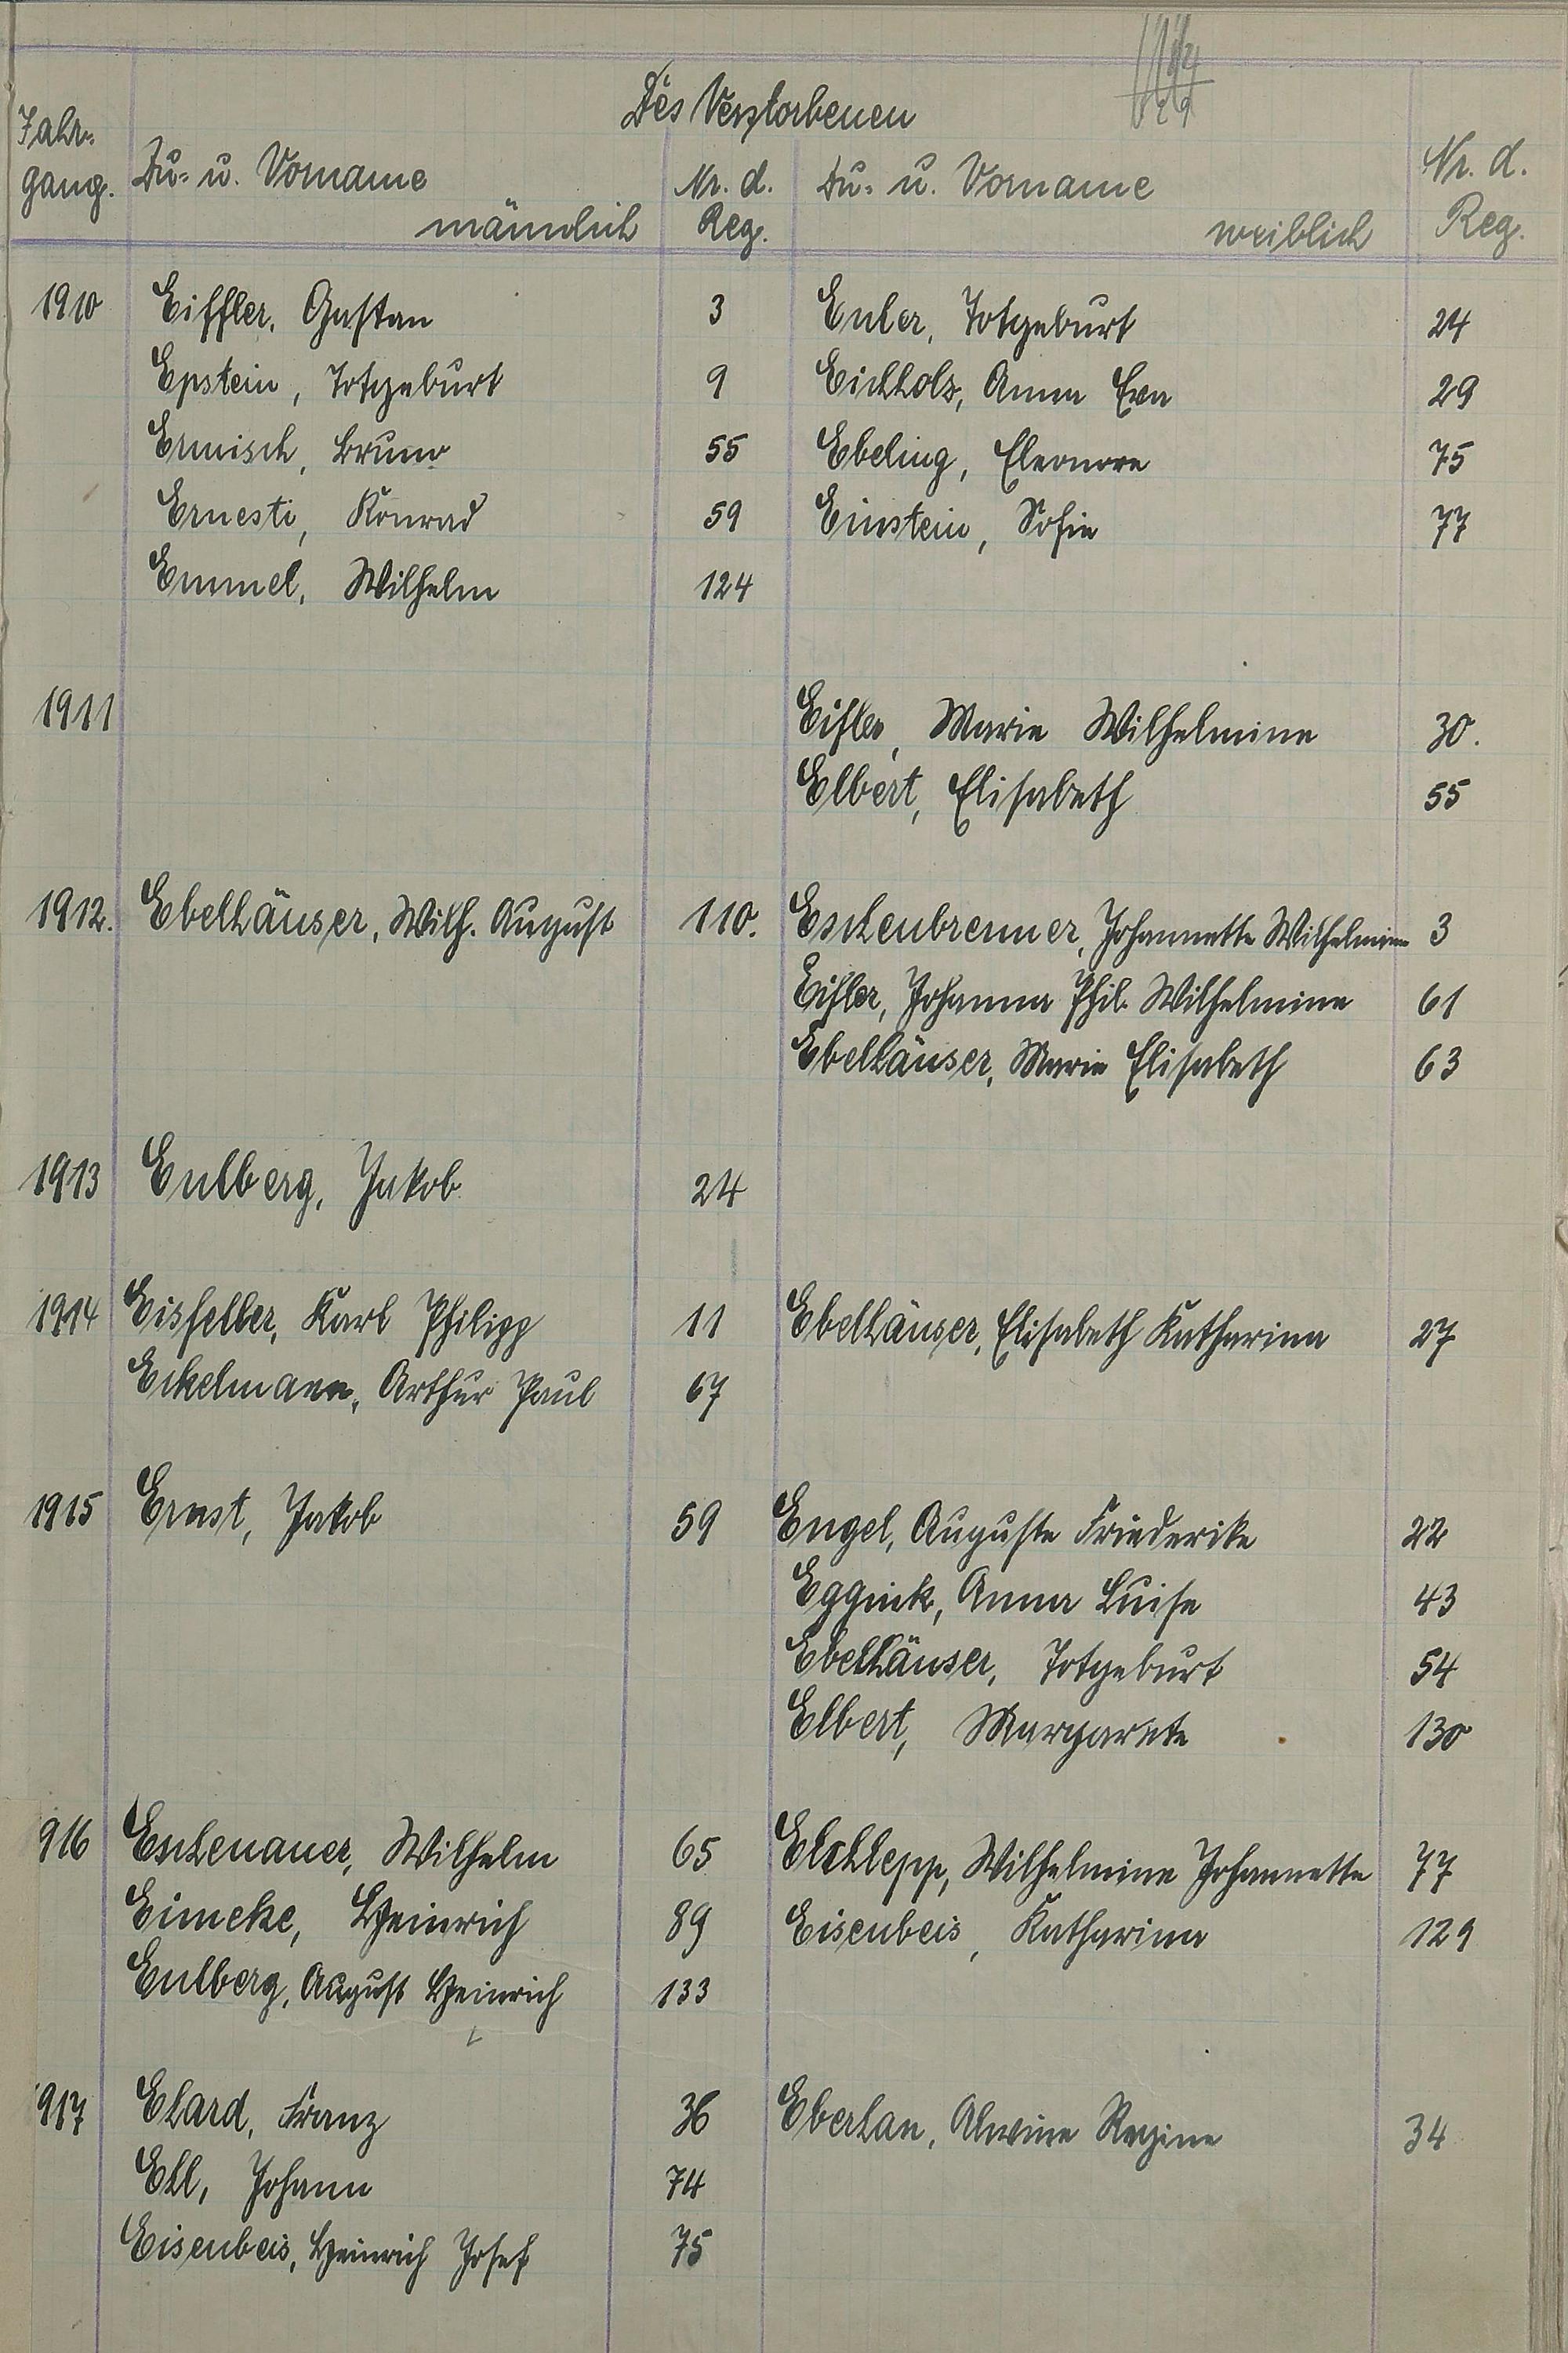 Des Verstorbenen
Jahr-
gang.
Zu- u. Vorname
männlich
Nr. d.
Reg.
Zu- u. Vorname
weiblich
Nr. d.
Reg.
1910 Eiffler, Gustav 3 Euler, Totgeburt 24
Epstein, Totgeburt 9 Eichholz, Anna Eva 29
Ermisch, Bruno 55 Ebeling, Eleonore 75
Ernesti, Konrad 59 Einstein, Sofie 77
Emmel, Wilhelm 124
1911 Eifler, Marie Wilhelmine 30.
Elbert, Elisabeth 55
1912. Ebelhäuser, Wilh. August 110. Eschenbrenner, Johannette Wilhelmine 3
Eifler, Johanna Phil. Wilhelmine 61
Ebelhäuser, Marie Elisabeth 63
1913 Eulberg, Jakob 24
1914 Eisfeller, Karl Philipp 11 Ebelhäuser, Elisabeth Katharina 27
Eikelmann, Arthur Paul 67
1915 Ernst, Jakob 59 Engel, Auguste Friederike 22
Eggink, Anna Luise 43
Ebelhäuser, Totgeburt 54
Elbert, Margarete 130
916 Eschenauer, Wilhelm 65 Elchlepp, Wilhelmine Johannette 77
Eimeke, Heinrich 89 Eisenbeis, Katharina 129
Eulberg, August Heinrich 133
917 Ehard, Franz 36 Eberhan, Alwine Regine 34
Ell, Johann 74
Eisenbeis, Heinrich Josef 75